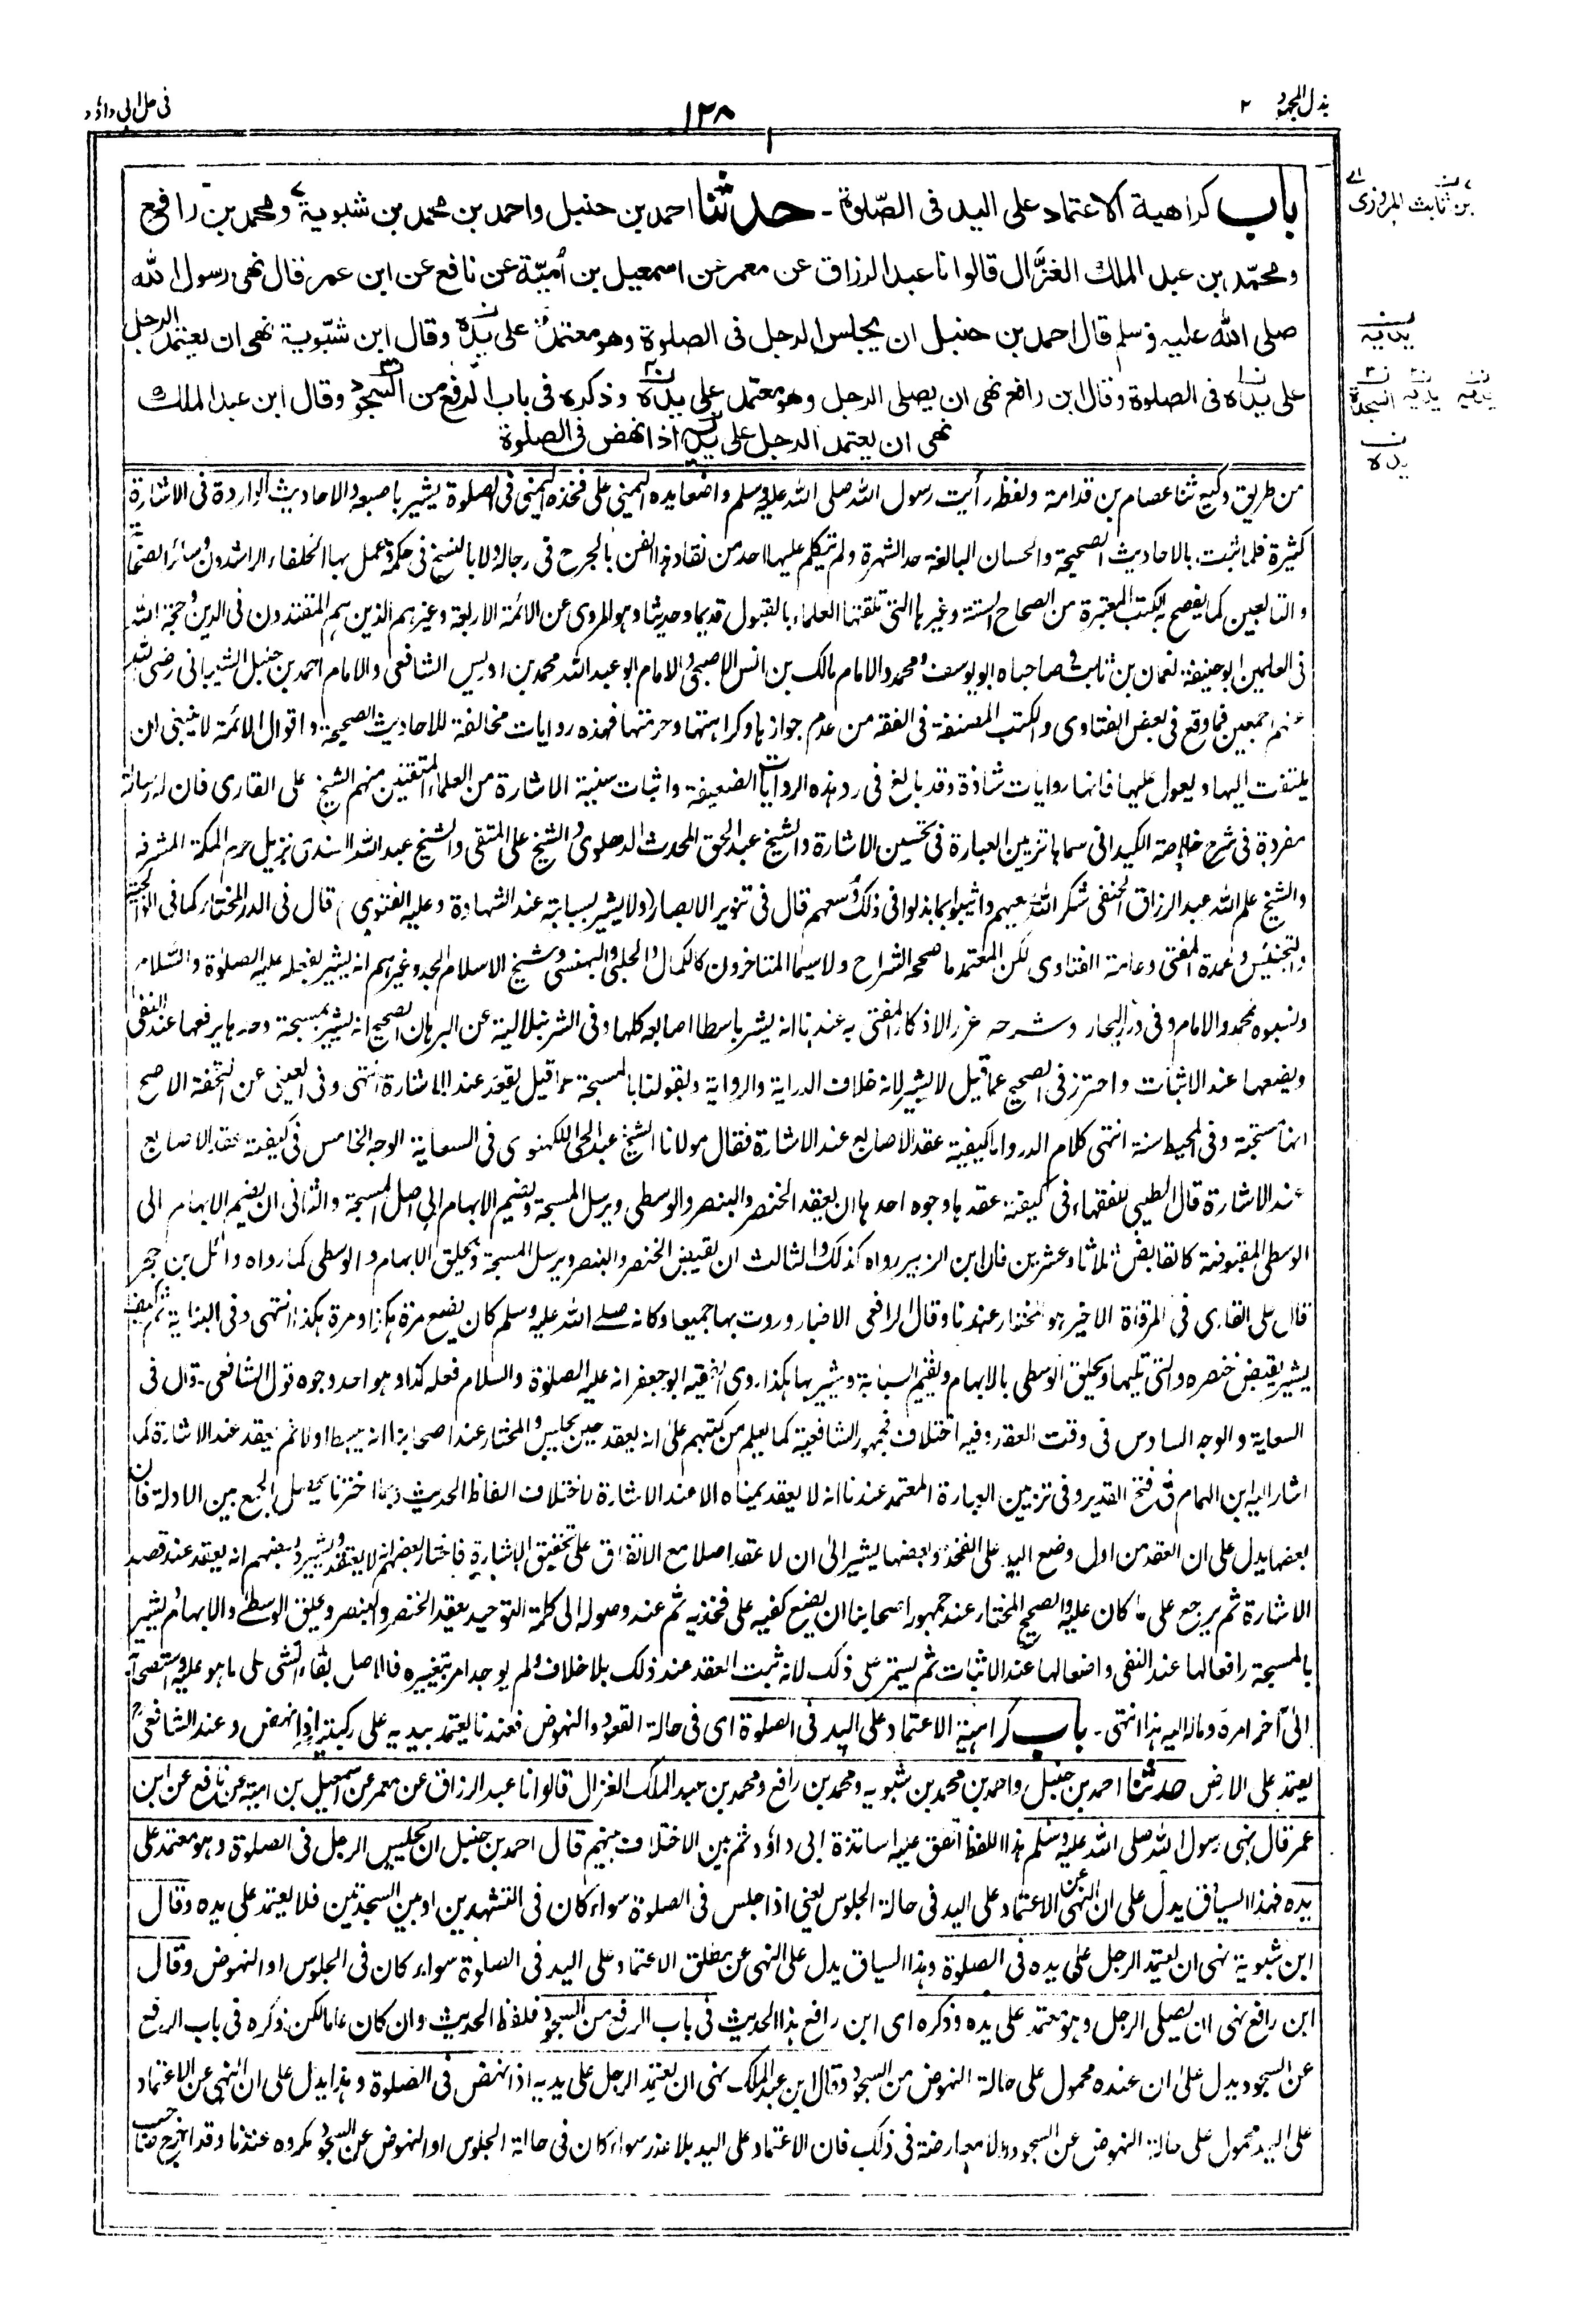 بذل المجهود ٢
١٢٨
فى حل ابى داؤد
باب كراهية الاعتماد على اليد فى الصّلوة ـ حدثنا احمد بن حنبل واحمد بن محمد بن شبوية ومحمد بن رافع
ومحمّد بن عبد الملك الغزّال قالوا نا عبد الرزاق عن معمر عن اسمعيل بن أميّة عن نافع عن ابن عمر قال نهى رسول الله
صلى الله عليه وسلم قال احمد بن حنبل ان يجلس الرجل فى الصلوة وهو معتمد على يده وقال ابن شبّوية نهى ان يعتمد الرجل
على يده فى الصلوة وقال ابن رافع نهى ان يصلى الرجل وهو معتمد على يده وذكره فى باب الرفع من السجود وقال ابن عبد الملك
نهى ان يعتمد الرجل على يديه اذا نهض فى الصلوة
بن ثابت المروزى
يديه
السجدة يديه يديه
يده
من طريق وكيع ثنا عصام بن قدامة ولفظه رأيت رسول الله صلى الله عليه وسلم واضعا يده اليمنى على فخذه اليمنى فى الصلوة يشير باصبعه والاحاديث الواردة فى الاشارة
كثيرة فلما اثبت بالاحاديث الصحيحة والحسان البالغة حد الشهرة ولم يتكلم عليها احد من نقاد هذا الفن بالجرح فى رجاله ولا بالنسخ فى حكمه عمل بها الخلفاء الراشدون وسائر الصحابة
والتابعين كما يفصح به الكتب المعتبرة من الصحاح الستة وغيرها التى تلقتها العلماء بالقبول قديما وحديثا وهو المروى عن الائمة الاربعة وغيرهم الذين هم المقتدون فى الدين وحجة الله
فى العلمين ابو حنيفة نعمان بن ثابت وصاحباه ابو يوسف ومحمد والامام مالك بن انس الاصبحى والامام ابو عبد الله محمد بن ادريس الشافعى والامام احمد بن حنبل الشيبانى رضى الله
عنهم اجمعين فما وقع فى بعض الفتاوى والكتب المصنفة فى الفقه من عدم جوازها وكراهتها وحرمتها فهذه روايات مخالفة للاحاديث الصحيحة واقوال الائمة لا ينبغى ان
يلتفت اليها ويعول عليها فانها روايات شاذة وقد بالغ فى رد هذه الروايات الضعيفة واثبات سنية الاشارة من العلماء المتقنين منهم الشيخ على القارى فان له رسالة
مفردة فى شرح خلاصة الكيدانى سماها تزيين العبارة فى تحسين الاشارة والشيخ عبد الحق المحدث الدهلوى والشيخ على المتقى والشيخ عبد الله السندى نزيل حرم المكة المشرفه
والشيخ علم الله عبد الرزاق الحنفى شكر الله سعيهم واثيبوا بما بذلوا فى ذلك وسعهم قال فى تنوير الابصار (ولا يشير بسبابته عند الشهادة وعليه الفتوى) قال فى الدر المختار كما فى الولوالجية
والتجنيس وعمدة المفتى وعامة الفتاوى لكن المعتمد ما صححه الشراح ولا سيما المتاخرون كالكمال والحلبى والبهنسى وشيخ الاسلام الجد وغيرهم انه يشير لفعله عليه الصلوة والسلام
ونسبوه لمحمد والامام وفى درر البحار وشرحه غرر الاذكار المفتى به عندنا انه يشير باسطا اصابعه كلها وفى الشرنبلالية عن البرهان الصحيح انه يشير بمسبحة وحدها يرفعها عند النفى
ويضعها عند الاثبات واحترز فى الصحيح عما قيل لا يشير لانه خلاف الدراية والرواية وبقولنا بالمسبحة عما قيل يعقد عند الاشارة انتهى وفى العينى عن التحفة الاصح
انها مستحبة وفى المحيط سنة انتهى كلام الدر واما كيفية عقد الاصابع عند الاشارة فقال مولانا الشيخ عبد الحى اللكهنوى فى السعاية الوجه الخامس فى كيفية عقد الاصابع
عند الاشارة قال الطيبى للفقهاء فى كيفية عقدها وجوه احدها ان يعقد الخنصر والبنصر والوسطى ويرسل المسبحة ويضم الابهام الى اصل المسبحة والثانى ان يضم الابهام الى
الوسطى المقبوضة كالقابض ثلاثا وعشرين فان ابن الزبير رواه كذلك والثالث ان يقبض الخنصر والبنصر ويرسل المسبحة ويحلق الابهام والوسطى كما رواه وائل بن حجر
قال على القارى فى المرقاة الاخير هو المختار عندنا وقال الرافعى الاخبار وروت بها جميعا وكانه صلى الله عليه وسلم كان يضع مرة هكذا ومرة هكذا انتهى وفى البناية ثم كيف
يشير يقبض خنصره والتى تليها ويحلق الوسطى بالابهام ويقيم السبابة ويشير بها هكذا روى الفقيه ابو جعفر انه عليه الصلوة والسلام فعله كذا وهو احد وجوه قول الشافعى ـ قال فى
السعاية والوجه السادس فى وقت العقد وفيه اختلاف فجمهور الشافعية كما يعلم من كتبهم على انه يعقد حين يجلس والمختار عند اصحابنا انه يبسط اولا ثم يعقد عند الاشارة كما
اشار اليه ابن الهمام فى فتح القدير وفى تزيين العبارة المعتمد عندنا انه لا يعقد يمناه الا عند الاشارة لاختلاف الفاظ الحديث وبما اخترنا يحصل الجمع بين الادلة فان
بعضها يدل على ان العقد من اول وضع اليد على الفخذ وبعضها يشير الى ان لا عقد اصلا مع الاتفاق على تحقيق الاشارة فاختار بعضهم انه لا يعقد ويشير وبعضهم انه يعقد عند قصد
الاشارة ثم يرجع على ما كان عليه والصحيح المختار عند جمهور اصحابنا ان يضع كفيه على فخذيه ثم عند وصوله الى كلمة التوحيد يعقد الخنصر والبنصر ويحلق الوسطى والابهام ويشير
بالمسبحة رافعا لها عند النفى واضعا لها عند الاثبات ثم يستمر على ذلك لانه ثبت العقد عند ذلك بلا خلاف ولم يوجد امر بتغييره فالاصل بقاء الشى على ما هو عليه واستصحابه
الى آخر امره وماله اليه هذا انتهى ـ باب كراهية الاعتماد على اليد فى الصلوة اى فى حالة القعود والنهوض فعندنا يعتمد بيديه على ركبتيه اذا نهض وعند الشافعى
يعتمد على الارض حدثنا احمد بن حنبل واحمد بن محمد بن شبويه ومحمد بن رافع ومحمد بن عبد الملك الغزال قالوا نا عبد الرزاق عن معمر عن اسمعيل بن امية عن نافع عن ابن
عمر قال نهى رسول الله صلى الله عليه وسلم هذا اللفظ اتفق عليه اساتذة ابى داؤد ثم بين الاختلاف بينهم قال احمد بن حنبل ان يجلس الرجل فى الصلوة وهو معتمد على
يده فهذا السياق يدل على ان النهى عن الاعتماد على اليد فى حالة الجلوس يعنى اذا جلس فى الصلوة سواء كان فى التشهدين او بين السجدتين فلا يعتمد على يده وقال
ابن شبوية نهى ان يعتمد الرجل على يده فى الصلوة وهذا السياق يدل على النهى عن مطلق الاعتماد على اليد فى الصلوة سواء كان فى الجلوس او النهوض وقال
ابن رافع نهى ان يصلى الرجل وهو معتمد على يده وذكره اى ابن رافع هذا الحديث فى باب الرفع من السجود فلفظ الحديث وان كان عاما لكن ذكره فى باب الرفع
عن السجود يدل على ان عنده محمول على حالة النهوض من السجود وقال ابن عبد الملك نهى ان يعتمد الرجل على يديه اذا نهض فى الصلوة وهذا يدل على ان النهى عن الاعتماد
على اليد محمول على حالة النهوض عن السجود ولا معارضة فى ذلك فان الاعتماد على اليد بلا عذر سواء كان فى حالة الجلوس او النهوض عن السجود مكروه عندنا وقد اخرج صاحب